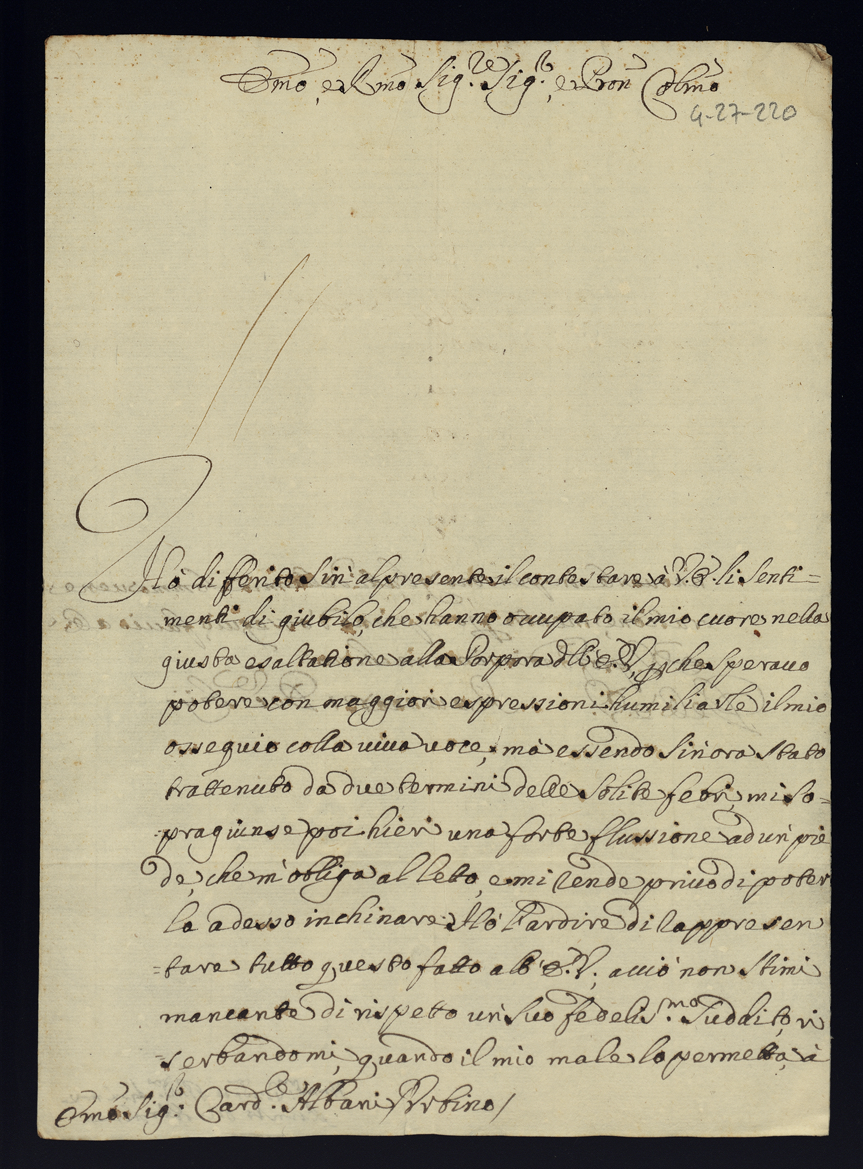 Emo, e Rmo Sig.re Sig.r, e Pron Colmo
4-27-220
Hò differito sin' al presente il contestare à V. E. li senti=
menti di giubilo, che hanno occupato il mio cuore nella
giusta esaltatione alla Porpora dell' E. V., perche speravo
potere con maggiori espressioni humiliarle il mio
ossequio colla viva voce, mà essendo sin' ora stato
trattenuto da due termini delle solite febri, mi so=
pragiunse poi hieri una forte flussione ad un' pie
de, che m' obliga al letto, e mi rende privo di poter
la adesso inchinare. Hò l' ardire di rappresen
=tare tutto questo fatto all' E. V., acciò non stimi
mancante di rispetto un' suo fedeliss.mo suddito, ri
=serbandomi, quando il mio male lo permetta, à
Emo Sig.r Card.le Albani Urbino/